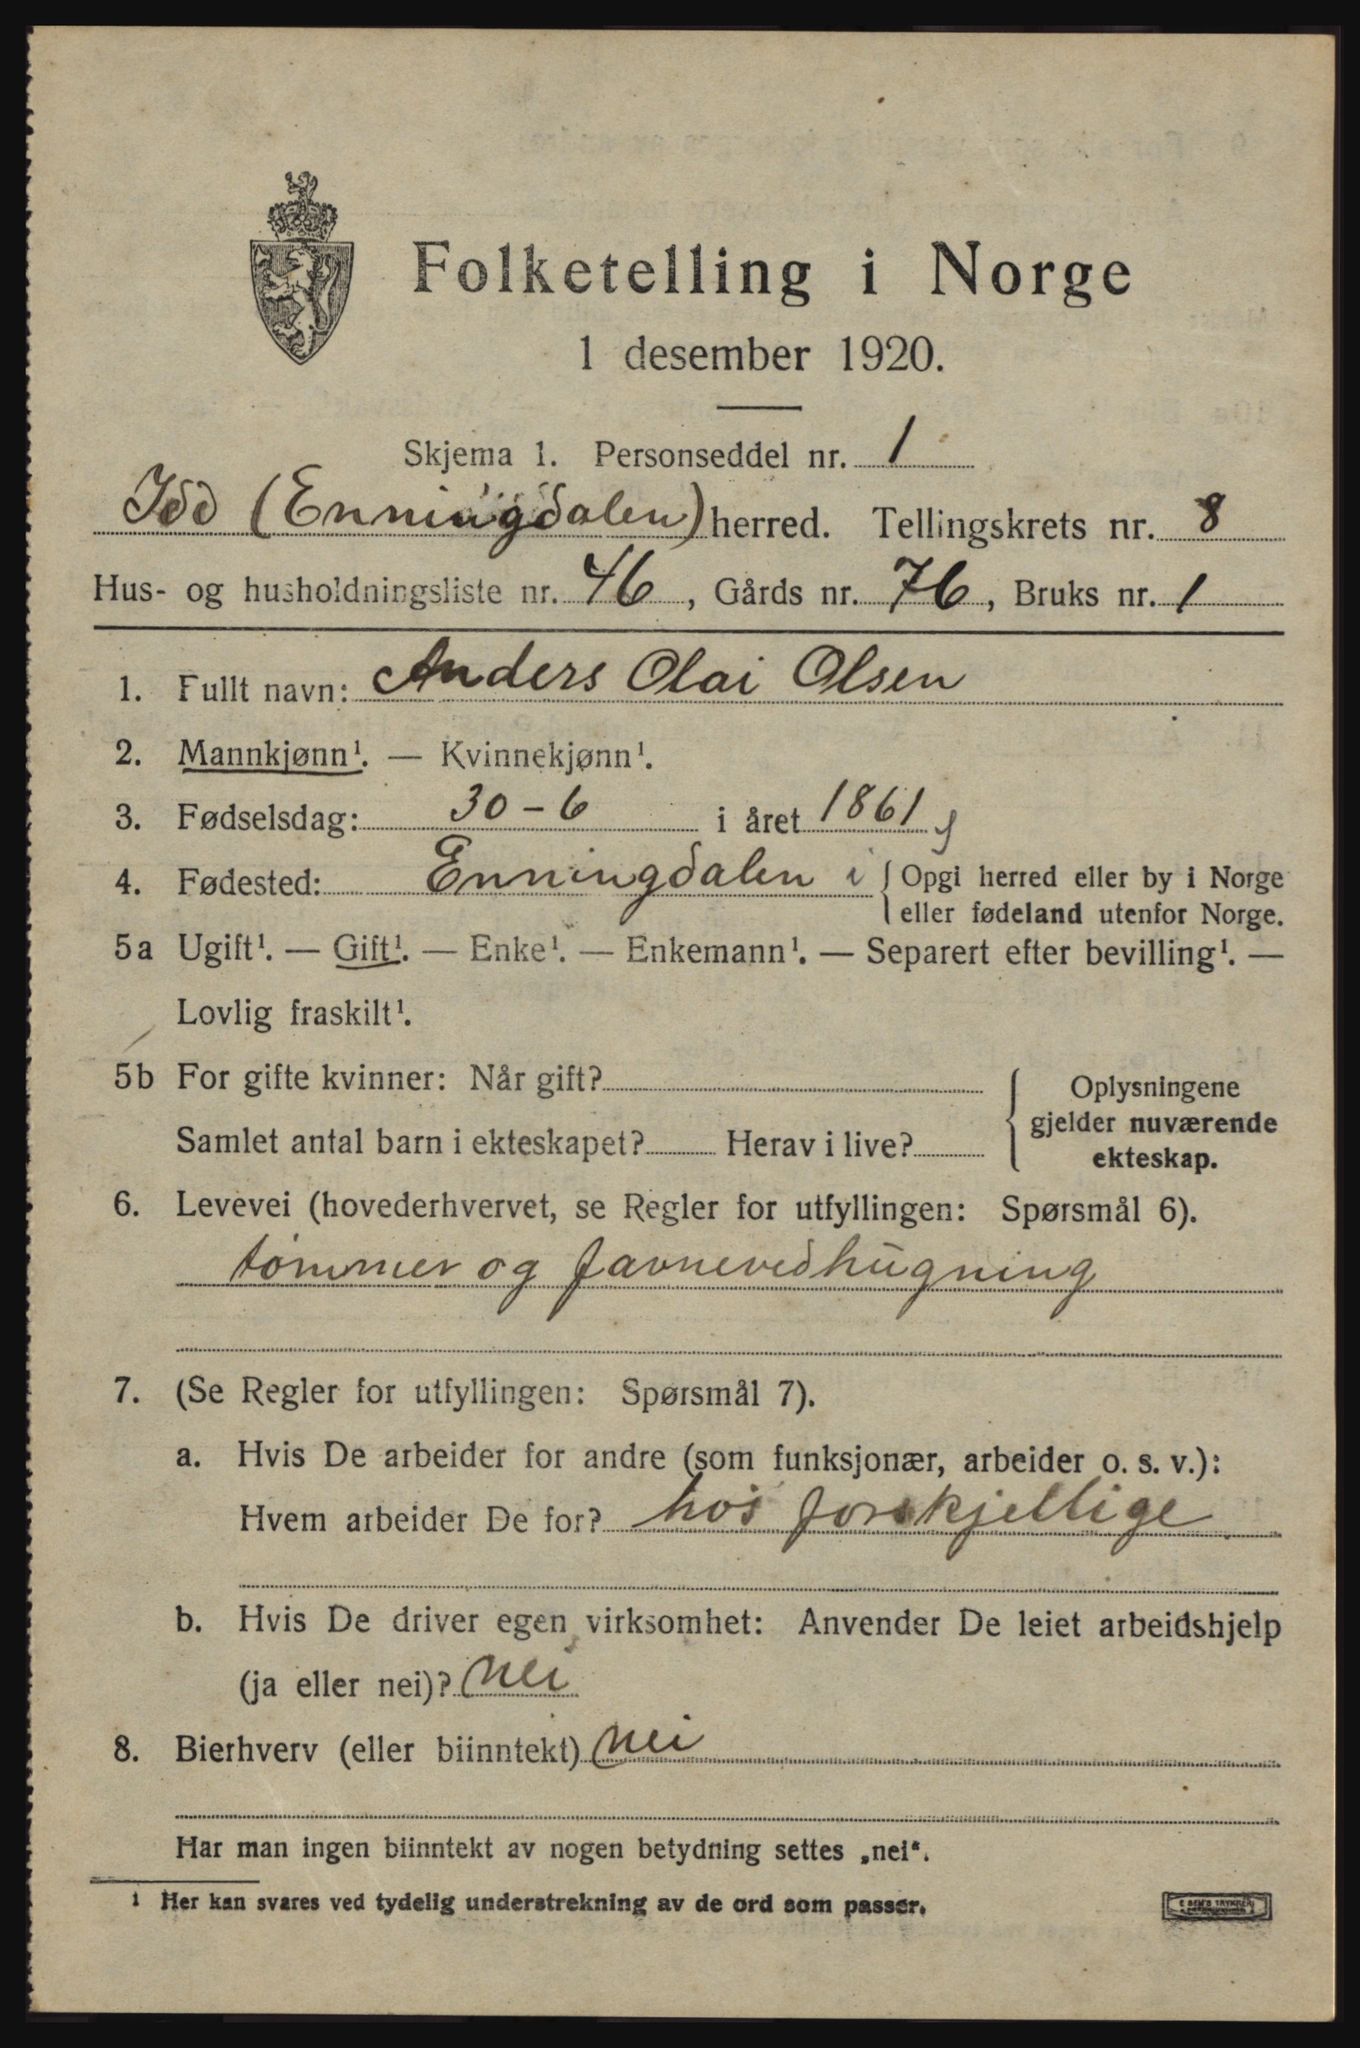 Folketelling i Norge
1 desember 1920.
Skjema 1. Personseddel nr. 1
Idd (Enningdalen) herred. Tellingskrets nr. 8
Hus- og husholdningsliste nr. 46, Gårds nr. 76, Bruks nr. 1
1. Fullt navn: Anders Olai Olsen
2. Mannkjønn¹. — Kvinnekjønn¹.
3. Fødselsdag: 30-6 i året 1861
4. Fødested: Enningdalen i { Opgi herred eller by i Norge
eller fødeland utenfor Norge.
5a Ugift¹. — Gift¹. — Enke¹. — Enkemann¹. — Separert efter bevilling¹. —
Lovlig fraskilt¹.
5b For gifte kvinner: Når gift?
Samlet antal barn i ekteskapet? Herav i live?
Oplysningene
gjelder nuværende
ekteskap.
6. Levevei (hovederhvervet, se Regler for utfyllingen: Spørsmål 6).
tømmer og favnevedhugning
7. (Se Regler for utfyllingen: Spørsmål 7).
a. Hvis De arbeider for andre (som funksjonær, arbeider o. s. v.):
Hvem arbeider De for? hos forskjellige
b. Hvis De driver egen virksomhet: Anvender De leiet arbeidshjelp
(ja eller nei)? nei
8. Bierhverv (eller biinntekt) nei
Har man ingen biinntekt av nogen betydning settes „nei“.
1 Her kan svares ved tydelig understrekning av de ord som passer.